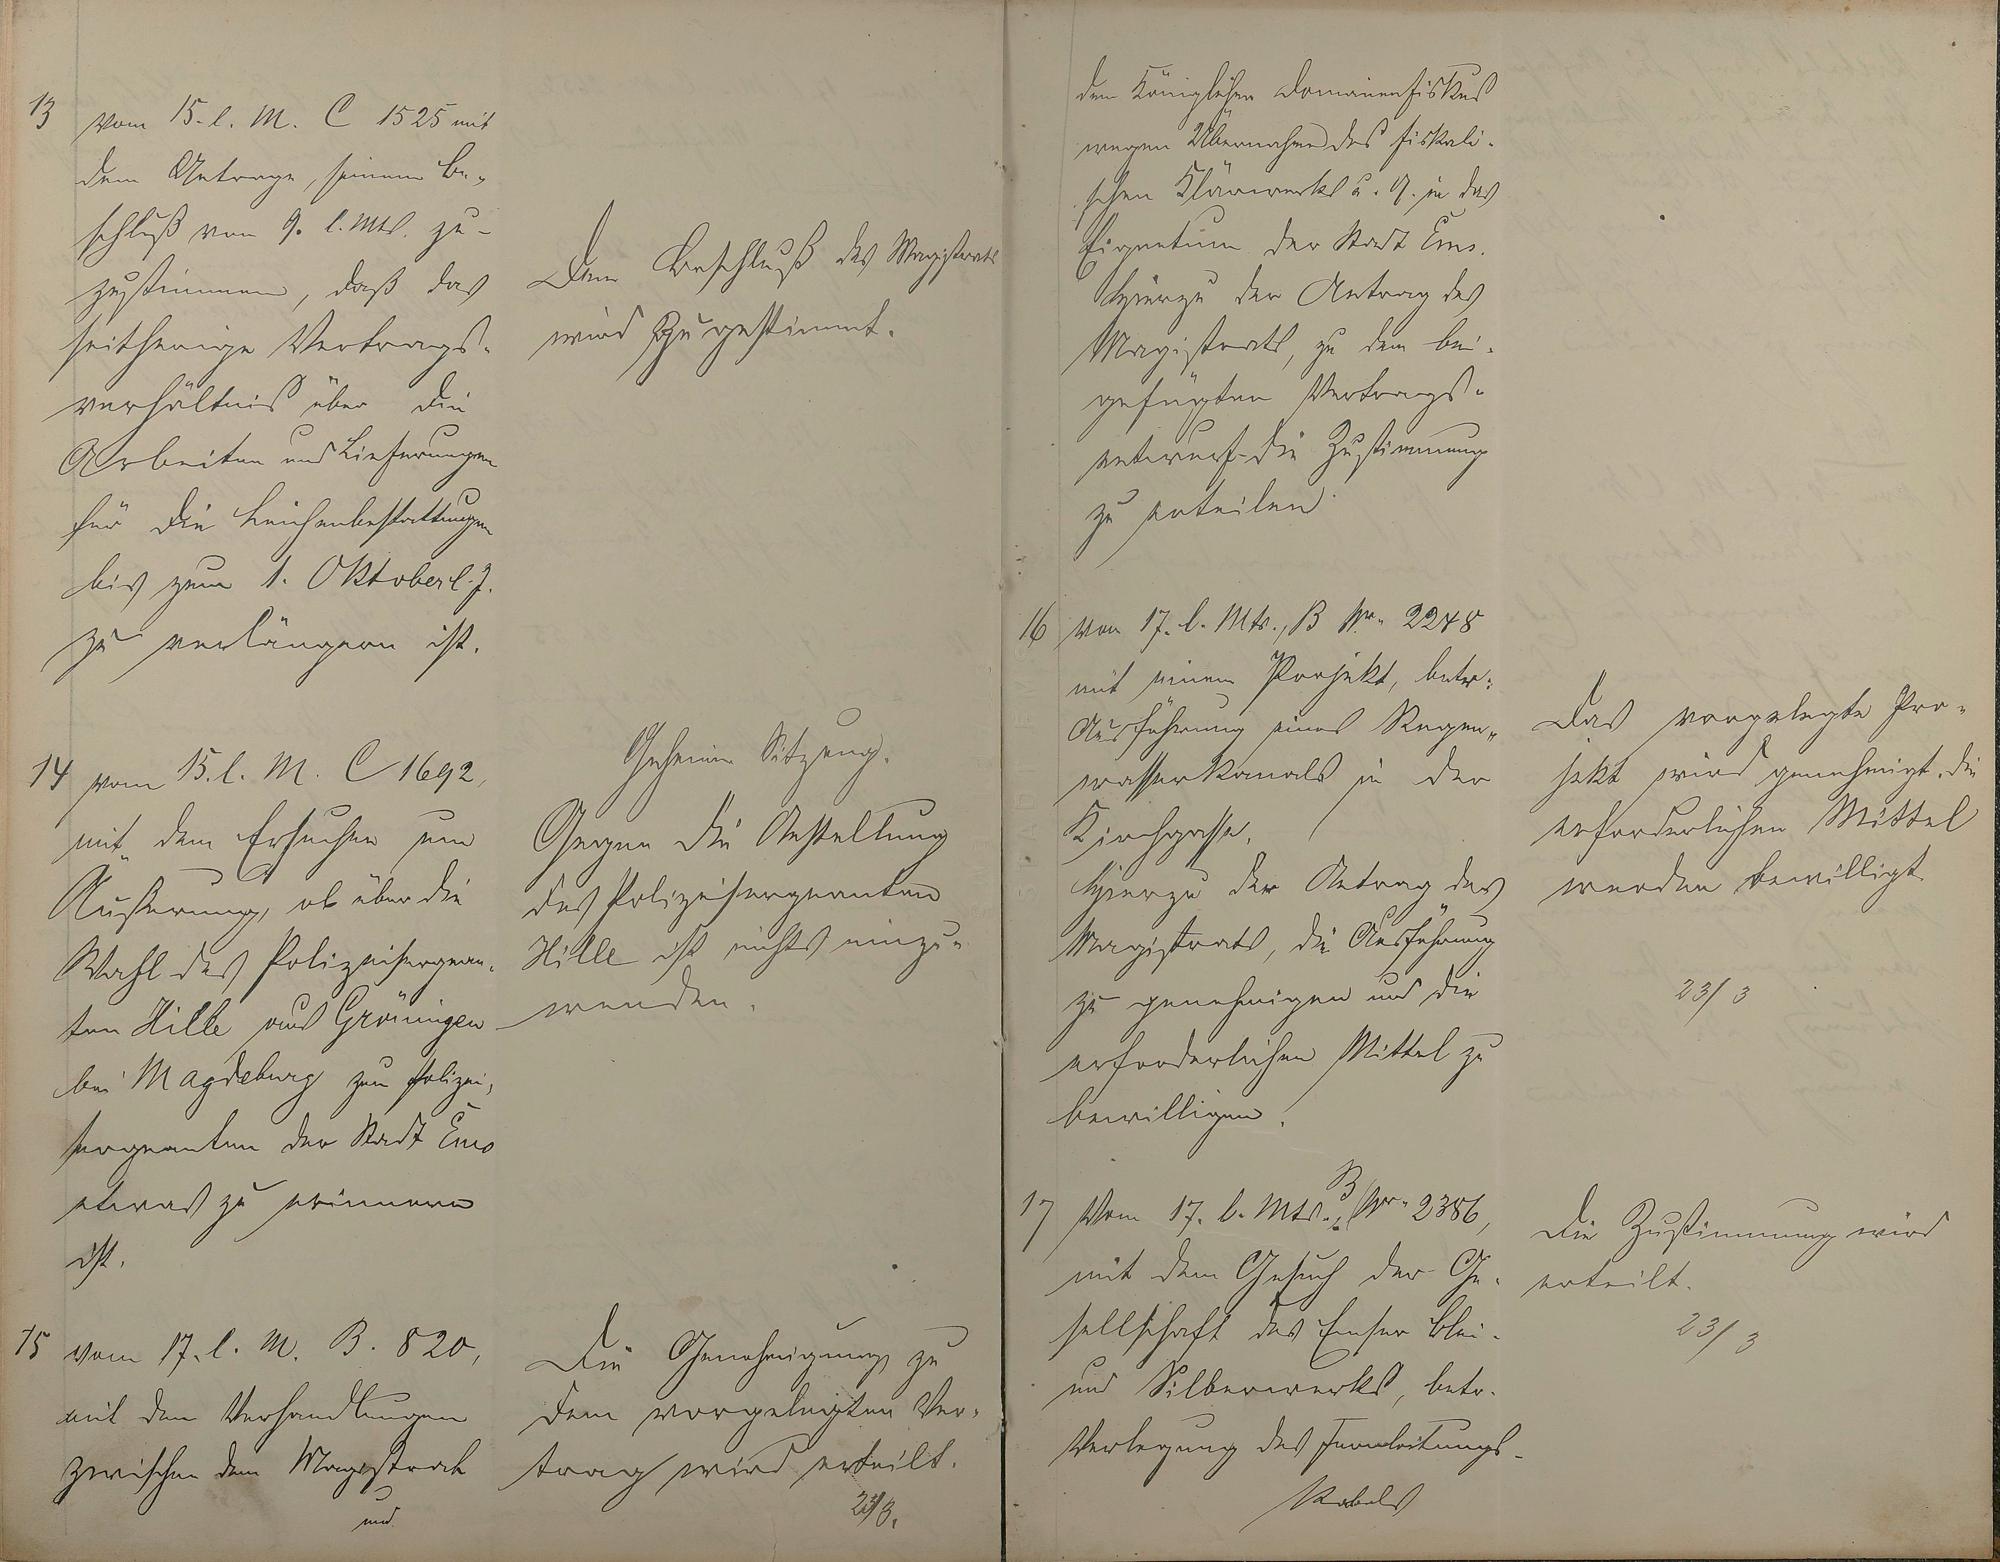 13 vom 15. l. M. C 1525 mit
dem Antrage, seinem Be-
schluß vom 9. l. Mts. zu-
zustimmen, daß das
seitherige Vertrags-
verhältnis über die
Arbeiten und Lieferungen
für die Leichenbestattungen
bis zum 1. Oktober l. J.
zu verlängern ist.
Dem Beschluß des Magistrats
wird zugestimmt.
14 vom 15. l. M. C 1692,
mit dem Ersuchen um
Äußerung, ob über die
Wahl des Polizeisergean-
ten Hille aus Gröningen
bei Magdeburg zum Polizei-
sergeanten der Stadt Ems
etwas zu erinnern
ist.
Geheime Sitzung.
Gegen die Anstellung
des Polizeisergeanten
Hille ist nichts einzu-
wenden.
15 vom 17. l. M. B. 820,
mit den Verhandlungen
zwischen dem Magistrat
und
Die Genehmigung zu
dem vorgelegten Ver-
trag wird erteilt.
23/3.
dem Königlichen Domänenfiskus
wegen Übernahme des fiskali-
schen Klärwerks u. A. in das
Eigentum der Stadt Ems.
Hierzu der Antrag des
Magistrats, zu dem bei-
gefügten Vertrags-
entwurf die Zustimmung
zu erteilen.
16 vom 17. l. Mts., B Nr. 2248
mit einem Projekt, betr.
Ausführung eines Regen-
wasserkanals in der
Kirchgasse.
Hierzu der Antrag des
Magistrats, die Ausführung
zu genehmigen und die
erforderlichen Mittel zu
bewilligen.
Das vorgelegte Pro-
jekt wird genehmigt. die
erforderlichen Mittel
werden bewilligt
23/3
17 Vom 17. l. Mts., B Nr. 2386,
mit dem Gesuch der Ge-
sellschaft des Emser Blei-
und Silberwerks, betr.
Verlegung des Fernleitungs-
Kabels
Die Zustimmung wird
erteilt.
23/3